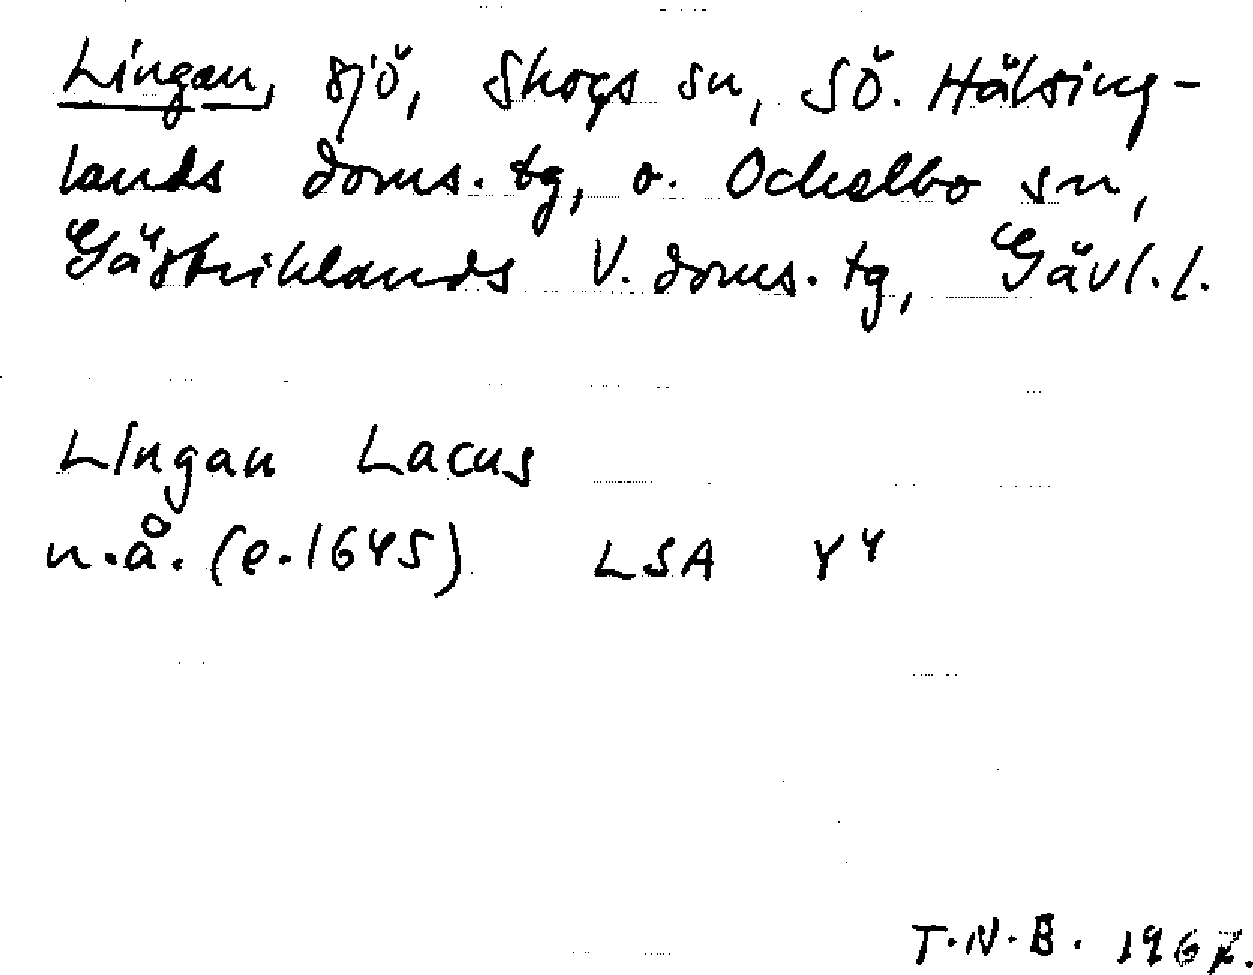 Lingan, sjö, Skogs sn, Sö. Hälsing-
lands doms. tg, o. Ockelbo sn,
Gästriklands V. doms. tg, Gävl. l.
Lingan Lacus
n.å. (e. 1645) LSA Y4
T.N.B.